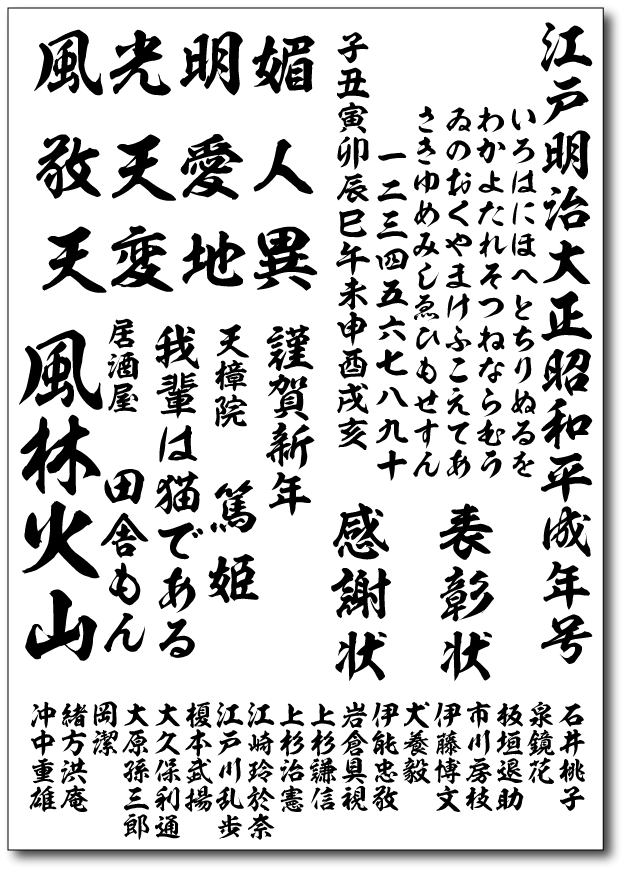 江戸明治大正昭和平成年号
いろはにほへとちりぬるを
わかよたれそつねならむう
ゐのおくやまけふこえてあ
さきゆめみしゑひもせすん
一二三四五六七八九十
子丑寅卯辰巳午未申酉戌亥
媚人異
明愛地
光天変
風敬天
表彰状
感謝状
謹賀新年
天樟院 篤姫
我輩は猫である
居酒屋 田舎もん
風林火山
石井桃子
泉鏡花
板垣退助
市川房枝
伊藤博文
犬養毅
伊能忠敬
岩倉具視
上杉謙信
上杉治憲
江崎玲於奈
江戸川乱歩
榎本武揚
大久保利通
大原孫三郎
岡潔
緒方洪庵
沖中重雄